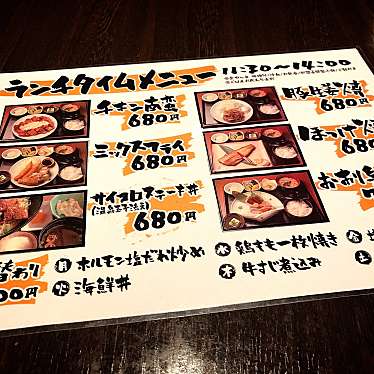 ランチタイムメニュー 11:30～14:00
チキン南蛮
680円
ミックスフライ
680円
サイコロステーキ丼
(温玉子添え)
680円
豚生姜
680円
ほっけ
680円
替わり
00円
月 ホルモン塩だれ炒め
火 海鮮丼
水 鶏もも一枚焼き
木 牛すじ煮込み
金
土